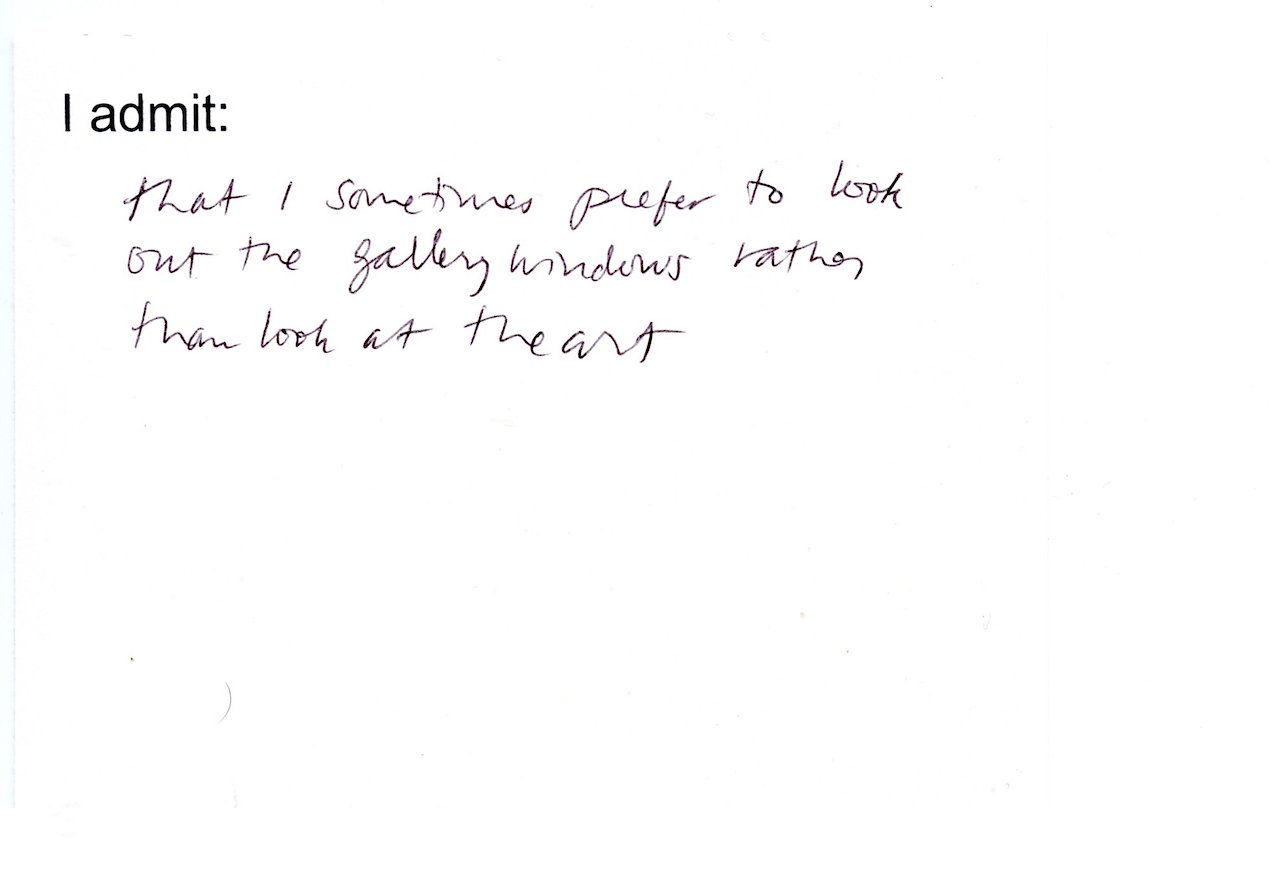 I admit:
that I sometimes prefer to look
out the gallery windows rather
than look at the art